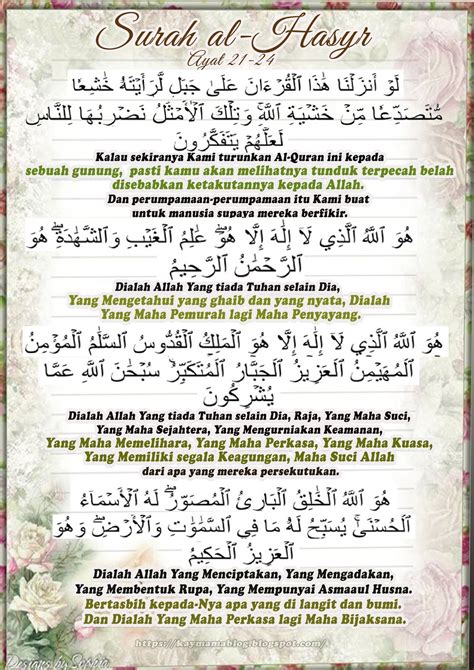 Surah al-Hasyr
Ayat 21-24
لَوْ أَنزَلْنَا هَٰذَا ٱلْقُرْءَانَ عَلَىٰ جَبَلٍ لَّرَأَيْتَهُۥ خَٰشِعًا
مُّتَصَدِّعًا مِّنْ خَشْيَةِ ٱللَّهِ ۚ وَتِلْكَ ٱلْأَمْثَٰلُ نَضْرِبُهَا لِلنَّاسِ
لَعَلَّهُمْ يَتَفَكَّرُونَ
Kalau sekiranya Kami turunkan Al-Quran ini kepada
sebuah gunung, pasti kamu akan melihatnya tunduk terpecah belah
disebabkan ketakutannya kepada Allah.
Dan perumpamaan-perumpamaan itu Kami buat
untuk manusia supaya mereka berfikir.
هُوَ ٱللَّهُ ٱلَّذِي لَا إِلَٰهَ إِلَّا هُوَ ۖ عَٰلِمُ ٱلْغَيْبِ وَٱلشَّهَٰدَةِ ۖ هُوَ
ٱلرَّحْمَٰنُ ٱلرَّحِيمُ
Dialah Allah Yang tiada Tuhan selain Dia,
Yang Mengetahui yang ghaib dan yang nyata, Dialah
Yang Maha Pemurah lagi Maha Penyayang.
هُوَ ٱللَّهُ ٱلَّذِي لَا إِلَٰهَ إِلَّا هُوَ ٱلْمَلِكُ ٱلْقُدُّوسُ ٱلسَّلَٰمُ ٱلْمُؤْمِنُ
ٱلْمُهَيْمِنُ ٱلْعَزِيزُ ٱلْجَبَّارُ ٱلْمُتَكَبِّرُ ۚ سُبْحَٰنَ ٱللَّهِ عَمَّا
يُشْرِكُونَ
Dialah Allah Yang tiada Tuhan selain Dia, Raja, Yang Maha Suci,
Yang Maha Sejahtera, Yang Mengurniakan Keamanan,
Yang Maha Memelihara, Yang Maha Perkasa, Yang Maha Kuasa,
Yang Memiliki segala Keagungan, Maha Suci Allah
dari apa yang mereka persekutukan.
هُوَ ٱللَّهُ ٱلْخَٰلِقُ ٱلْبَارِئُ ٱلْمُصَوِّرُ ۖ لَهُ ٱلْأَسْمَاءُ
ٱلْحُسْنَىٰ ۚ يُسَبِّحُ لَهُۥ مَا فِي ٱلسَّمَٰوَٰتِ وَٱلْأَرْضِ ۖ وَهُوَ
ٱلْعَزِيزُ ٱلْحَكِيمُ
Dialah Allah Yang Menciptakan, Yang Mengadakan,
Yang Membentuk Rupa, Yang Mempunyai Asmaaul Husna.
Bertasbih kepada-Nya apa yang di langit dan bumi.
Dan Dialah Yang Maha Perkasa lagi Maha Bijaksana.
https://kaymamablog.blogspot.com/
Designs by Sophia